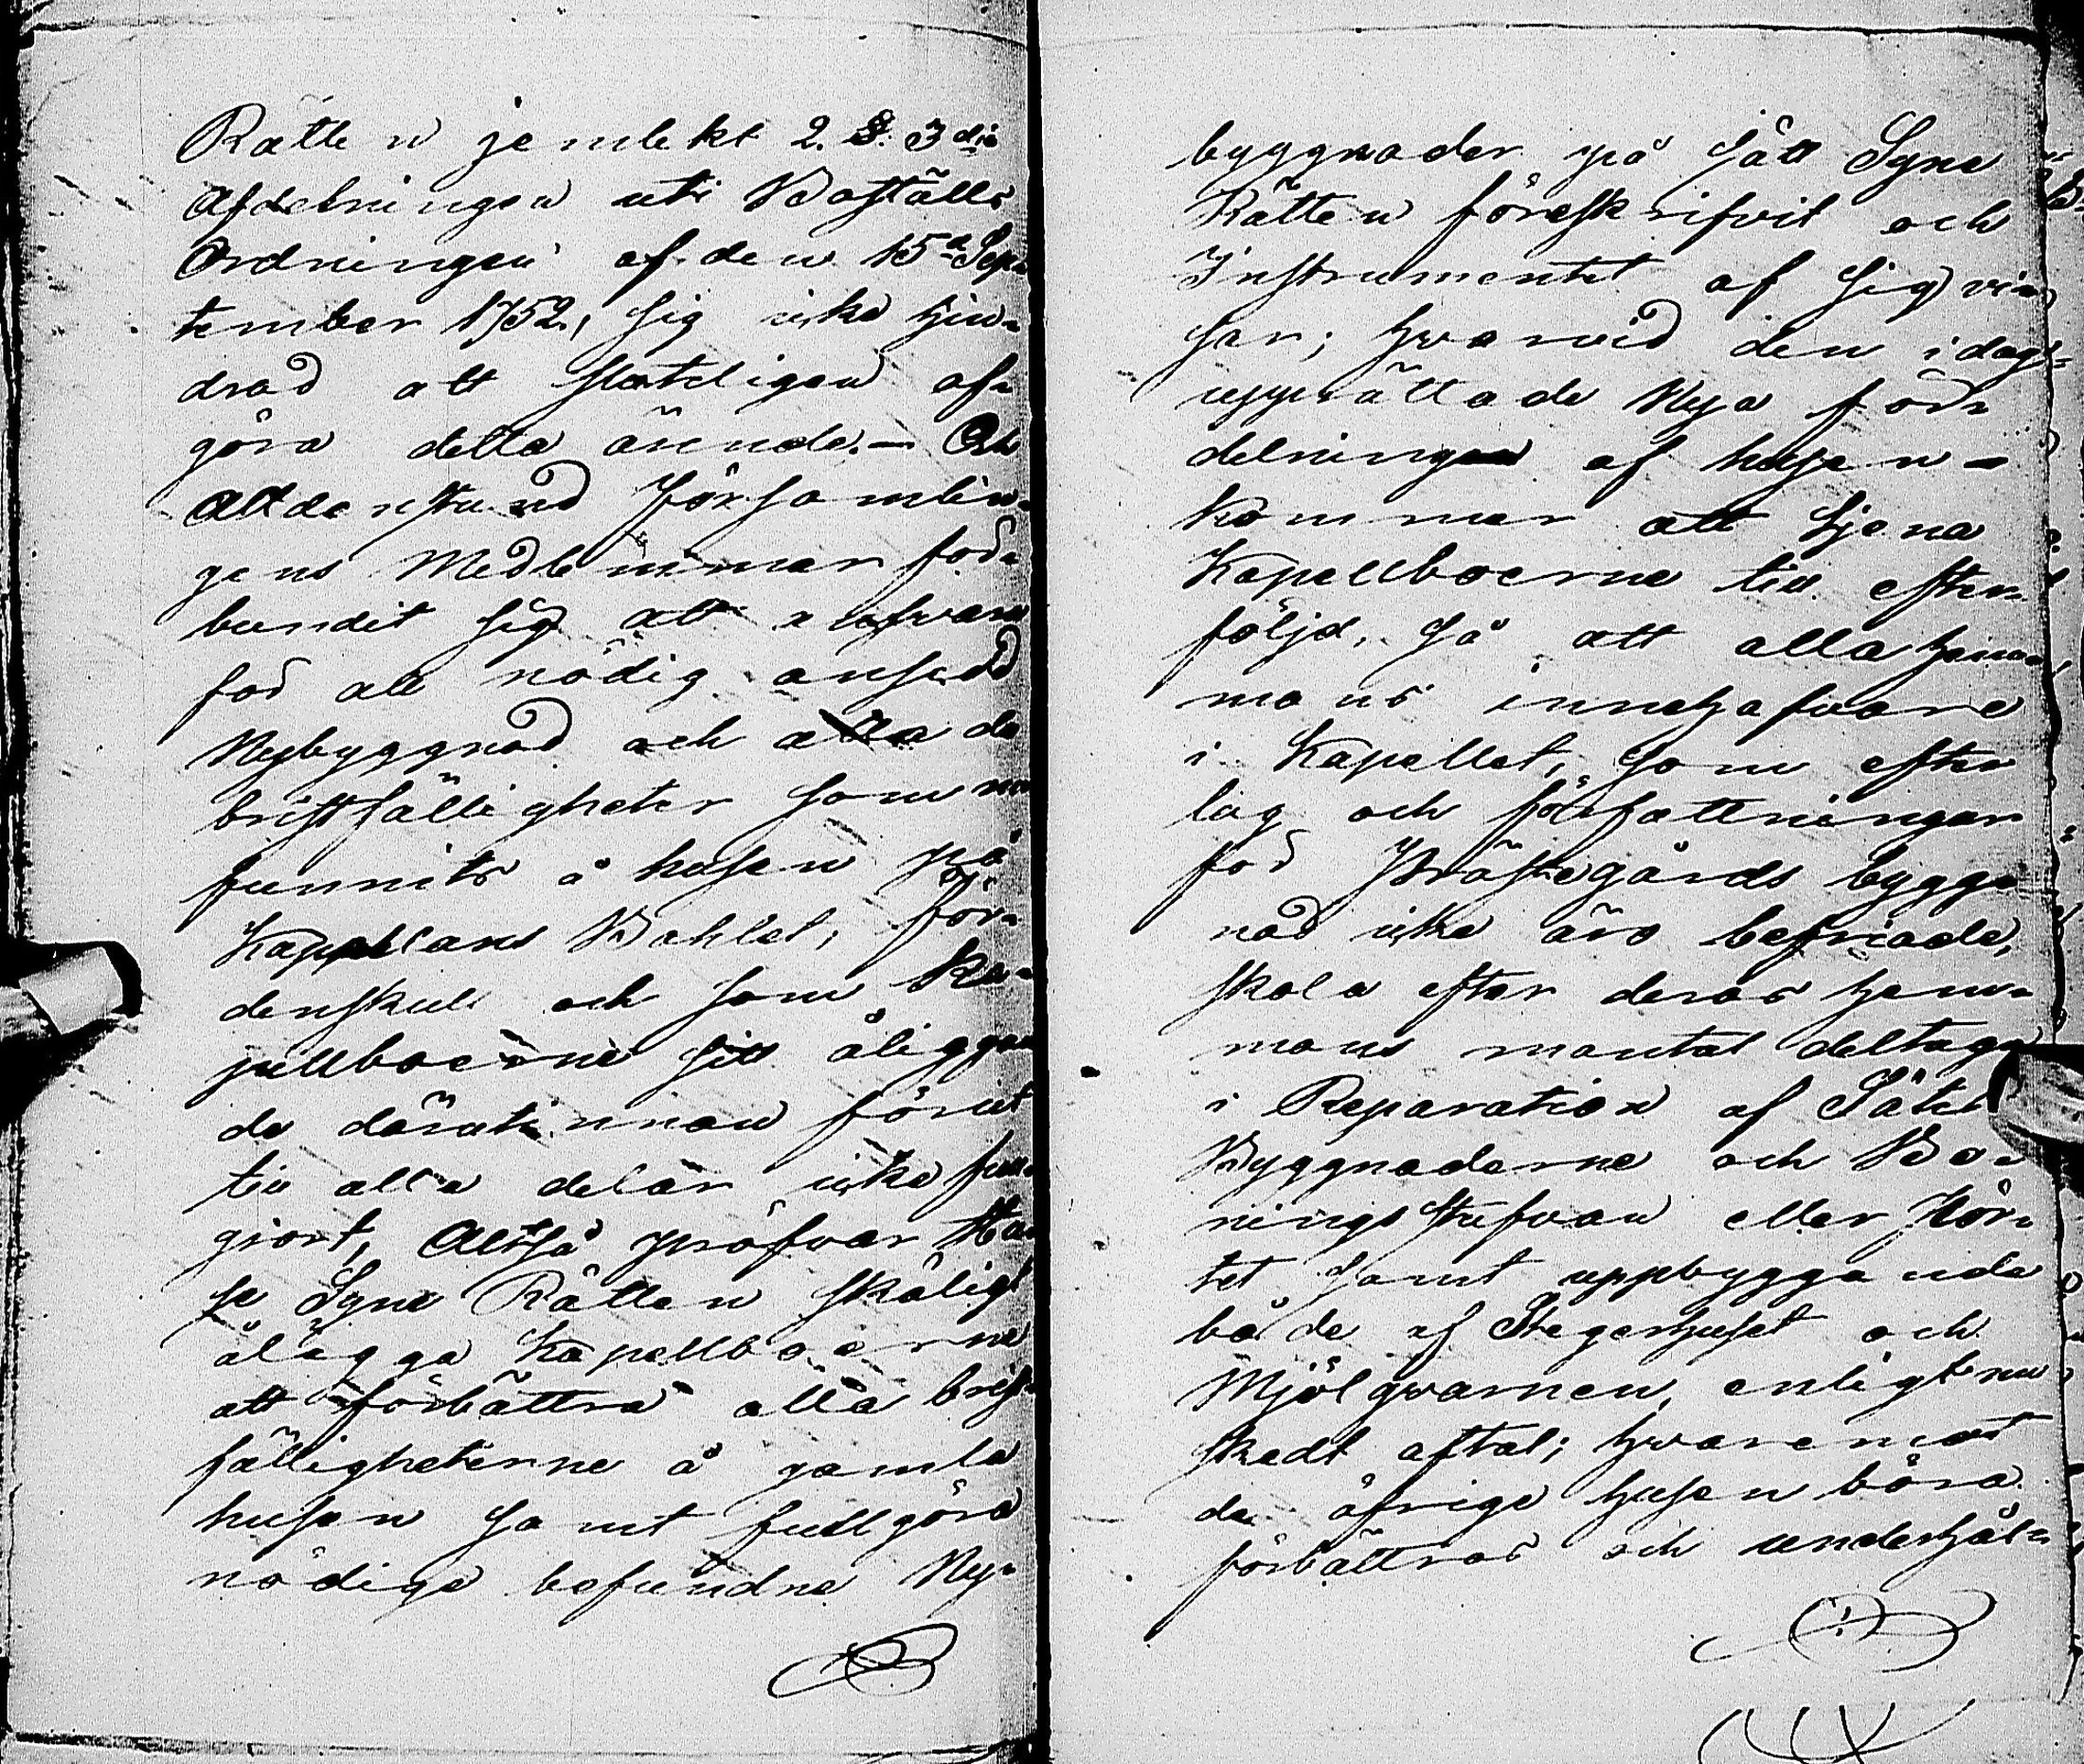 Rätten jemlikt 2. §. 3die
Afdelningen uti Boställs
Ordningen af den 15de Sep-
tember 1752, sig icke hin-
drad att slutligen af-
göra detta ämnde. - Och
Alldenstund Församlin-
gens Medlemmar för-
bundit sig att ansvara
för all nödig ansedd
Nybyggnad och alla de
bristfälligheter som nu
funnits å husen på
Kapplans Bohlet, för-
denskull och som Ka-
pellboerne sitt åliggan
de därutinnan förut
till alla delar icke full
giort, Altså pröfvar Hus
se Syne Rätten skäligt
ålägga Kapellboerne
att förbättra alla brist
fälligheterne å gamla
husen samt fullgöra
nödige befundne Ny-
byggnader på sätt Syne
Rätten föreskrifvit och
Instrumentet af sig vi-
sar; hvarvid den i dag
upprättade Nya för-
delningen af husen -
kommer att tjena
Kapellboerne till efter-
följd, så att alla hem-
mans innehafvare
i Kapellet, som efter
lag och författningar
för Prästegårds bygg-
nad icke äro befriade,
skola efter deras hem-
mans mantal deltaga
i Reparation af Säte
Byggnaderne och Bo-
ningsstufvan eller Pör-
tet samt uppbyggande
både af Stegerhuset och
Mjölqvarnen, enligt nu
skedt aftal; hvaremot
de öfrige husen böra
förbättras och underhål-